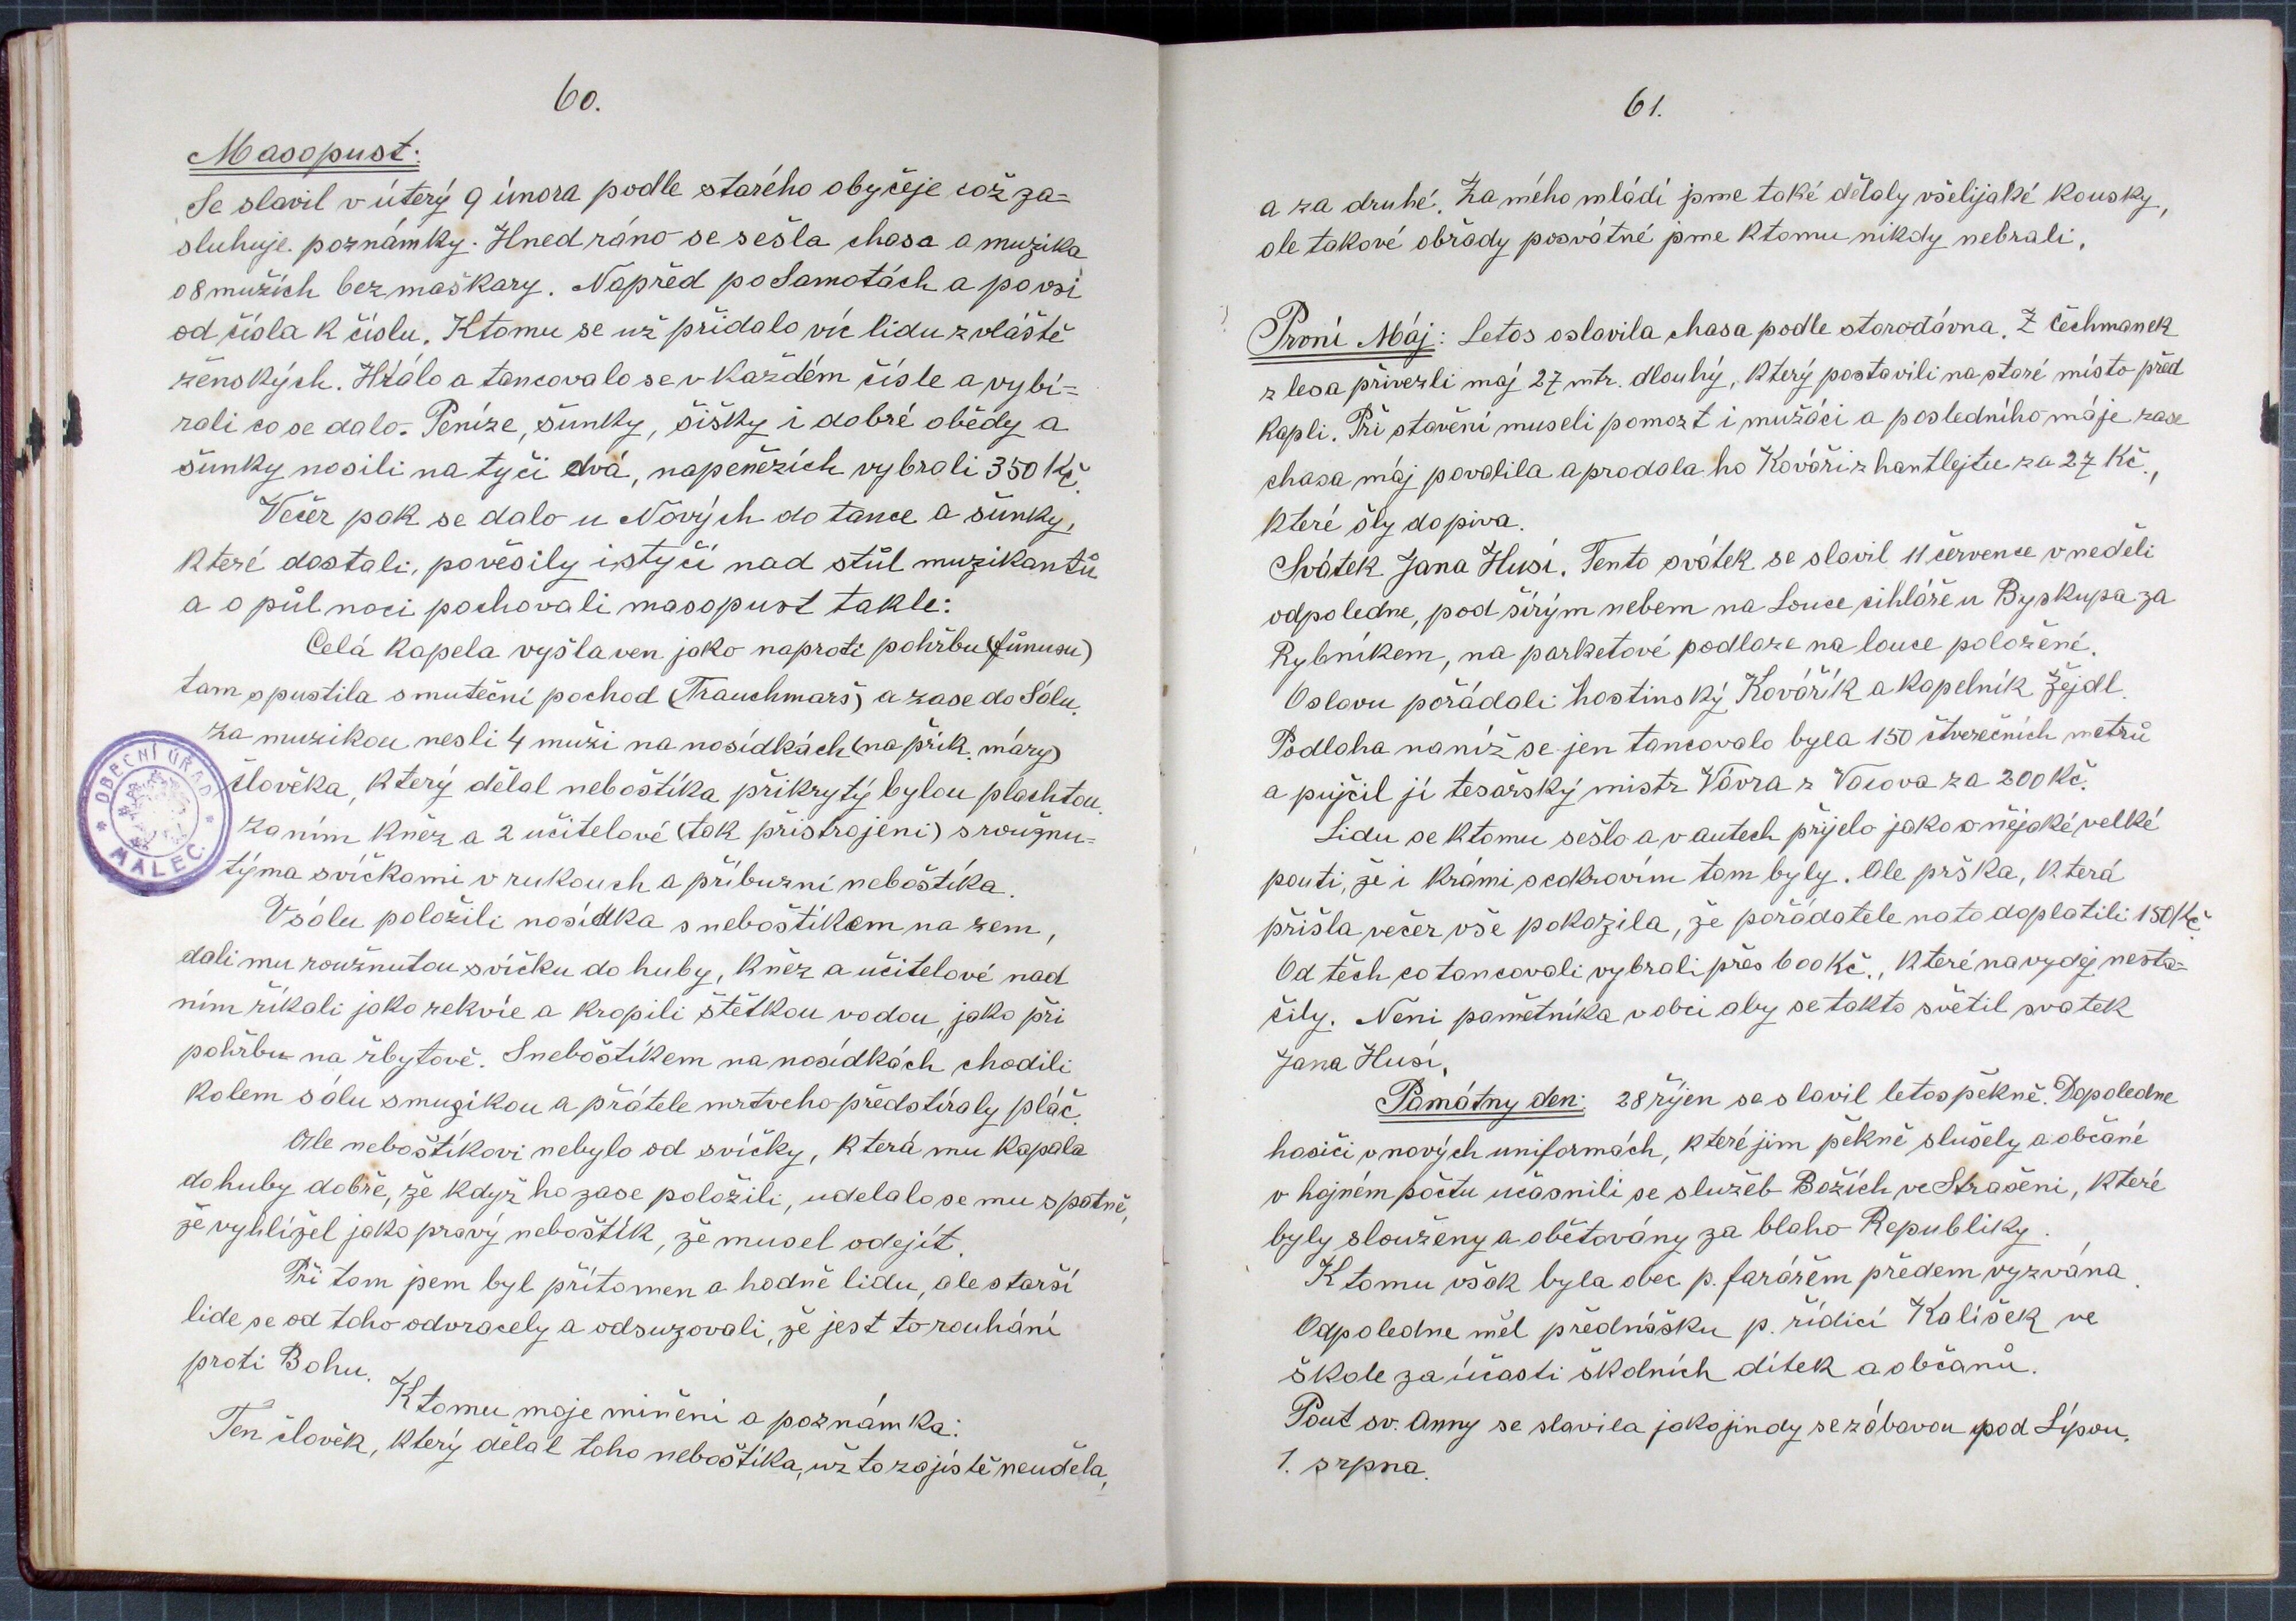 60.
Masopust:
Se slavil v úterý 9 února podle starého obyčeje což za=
sluhuje poznámky. Hned ráno se sešla chasa a muzika
o 8 mužích bez maškary. Napřed po Samotách a po vsi
od čísla k číslu. K tomu se už přidalo víc lidu zvláště
ženských. Hrálo a tancovalo se v každém čísle a vybí=
rali co se dalo. Peníze, šunky, šišky i dobré obědy a
šunky nosili na tyči dvá, na penězích vybrali 350 Kč.
Večer pak se dalo u Nových do tance a šunky,
které dostali, pověsily i s tyčí nad stůl muzikantů
a o půl noci pochovali masopust takle:
Celá kapela vyšla ven jako naproti pohřbu (fůnusu)
tam spustila smuteční pochod (Trauchmarš) a zase do Sálu.
Za muzikou nesli 4 muži na nosídkách (na přík. máry)
člověka, který dělal neboštíka přikrytý bylou plachtou.
za ním kněz a 2 učitelové (tak přistrojeni) s roužnu=
týma svíčkami v rukouch a příbuzní neboštíka.
V sálu položili nosídka s neboštíkem na zem,
dali mu roužnutou svíčku do huby, kněz a učitelové nad
ním říkali jako rekvie a kropili štětkou vodou, jako při
pohřbu na řbytově. S neboštíkem na nosídkách chodili
kolem sálu s muzikou a přátele mrtveho předstíraly pláč.
Ale neboštíkovi nebylo od svíčky, která mu kapala
do huby dobře, že když ho zase položili, udelalo se mu spatně,
že vyhlížel jako pravý neboštík, že musel odejít.
Při tom jsem byl přítomen a hodně lidu, ale starší
lide se od toho odvracely a odsuzovali, že jest to rouhání
proti Bohu.
K tomu moje miněni a poznámka:
Ten člověk, který dělal toho neboštíka, už to zajistě neuděla,
OBECNÍ ÚŘAD
MALEČ
61.
a za druhé. Za mého mládí jsme také dělaly všelijaké kousky,
ale takové obřady posvátné jsme k tomu nikdy nebrali.
První Máj: Letos oslavila chasa podle starodávna. Z Čechmanek
z lesa přivezli máj 27 mtr. dlouhý, který postavili na staré místo před
kapli. Při stavění museli pomozt i mužáci a posledního máje zase
chasa máj povalila a prodala ho Kováři z hantlejtu za 27 Kč.,
které šly do piva.
Svátek Jana Husi. Tento svátek se slavil 11 července v neděli
odpoledne, pod šírým nebem na Louce cihláře u Byskupa za
Rybníkem, na parketové podlaze na louce položení.
Oslavu pořádali: hostinský Kovářík a kapelník Žejdl.
Podlaha na níž se jen tancovalo byla 150 čtverečních metrů
a pujčil ji tesařský mistr Vávra z Vacova za 200 Kč.
Lidu se k tomu sešlo a v autech přijelo jako o nějaké velké
pouti, že i krámi s cukrovím tam byly. Ale prška, která
přišla večer vše pokazila, že pořádatele na to doplatili 150 Kč.
Od těch co tancovali vybrali přes 600 Kč., které na vydej nesta=
čily. Neni pamětníka v obci aby se takto světil svatek
Jana Husí.
Pámátny den: 28 říjen se slavil letos pěkně. Dopoledne
hasiči v nových uniformách, které jim pěkně slušely a občané
v hojném počtu učasnili se služeb Božích ve Strašeni, které
byly slouženy a obětovány za blaho Republiky.
K tomu však byla obec p. farářem předem vyzvána.
Odpoledne měl přednášku p. řídicí Kalíšek ve
škole za účasti školních dítek a občanů.
Pout sv. Anny se slavila jako jindy se zábavou pod Lípou.
1. srpna.